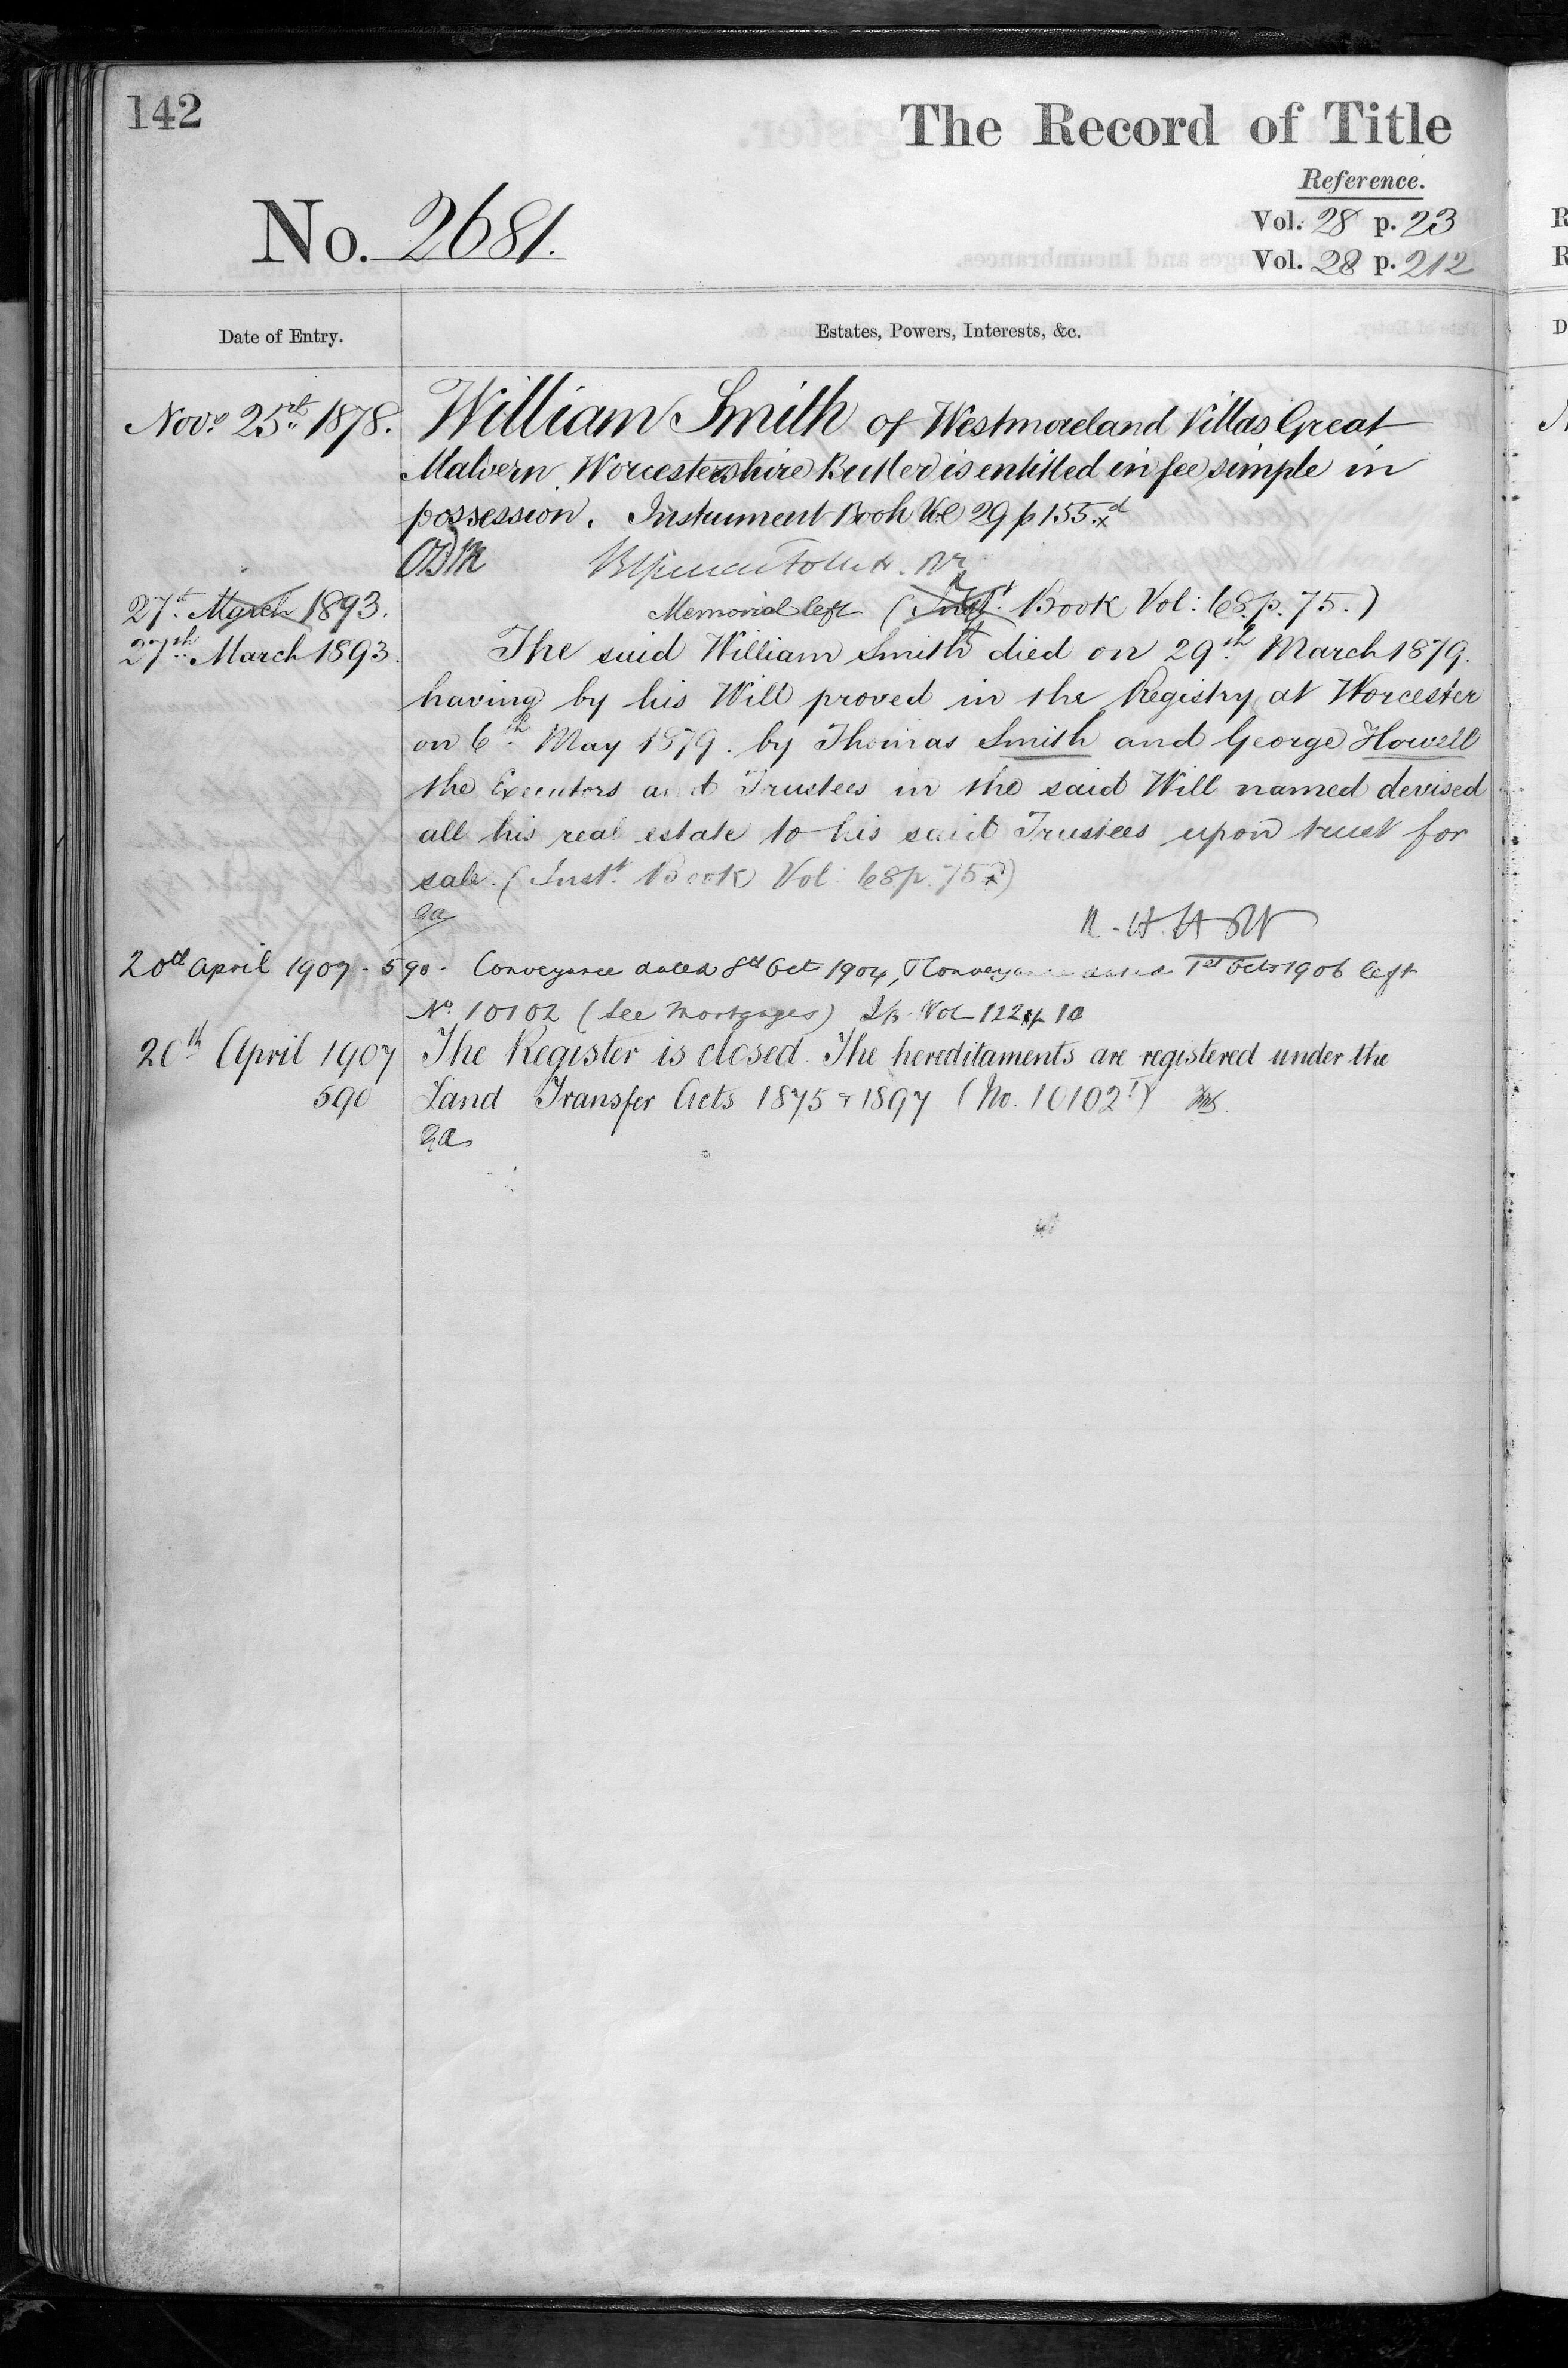 142
The Record of Title
Reference.
No. 2681.
Vol. 28 p. 23
Vol. 28 p. 212
Date of Entry.
Estates, Powers, Interests, &c.
Novr 25th 1878. William Smith of Westmoreland Villas Great
Malvern Worcestershire Butler is entitled in fee simple in
possession. Instrument Book Vol 29 p 155.
27th March 1893. Memorial left (Inst. Book Vol: 68. p. 75.)
27th March 1893. The said William Smith died on 29th March 1879.
having by his Will proved in the Registry at Worcester
on 6th May 1879. by Thomas Smith and George Howell
the Executors and Trustees in the said Will named devised
all his real estate to his said Trustees upon trust for
sale. (Inst. Book Vol: 68 p. 75)
20th April 1907 - 590 - Conveyance dated 8th Oct 1904, & Conveyance dated 1st Octr 1906 left
No. 10102 (See Mortgages) Vol 122 p 10
20th April 1907 The Register is closed. The hereditaments are registered under the
590 Land Transfer Acts 1875 & 1897 (No. 10102)